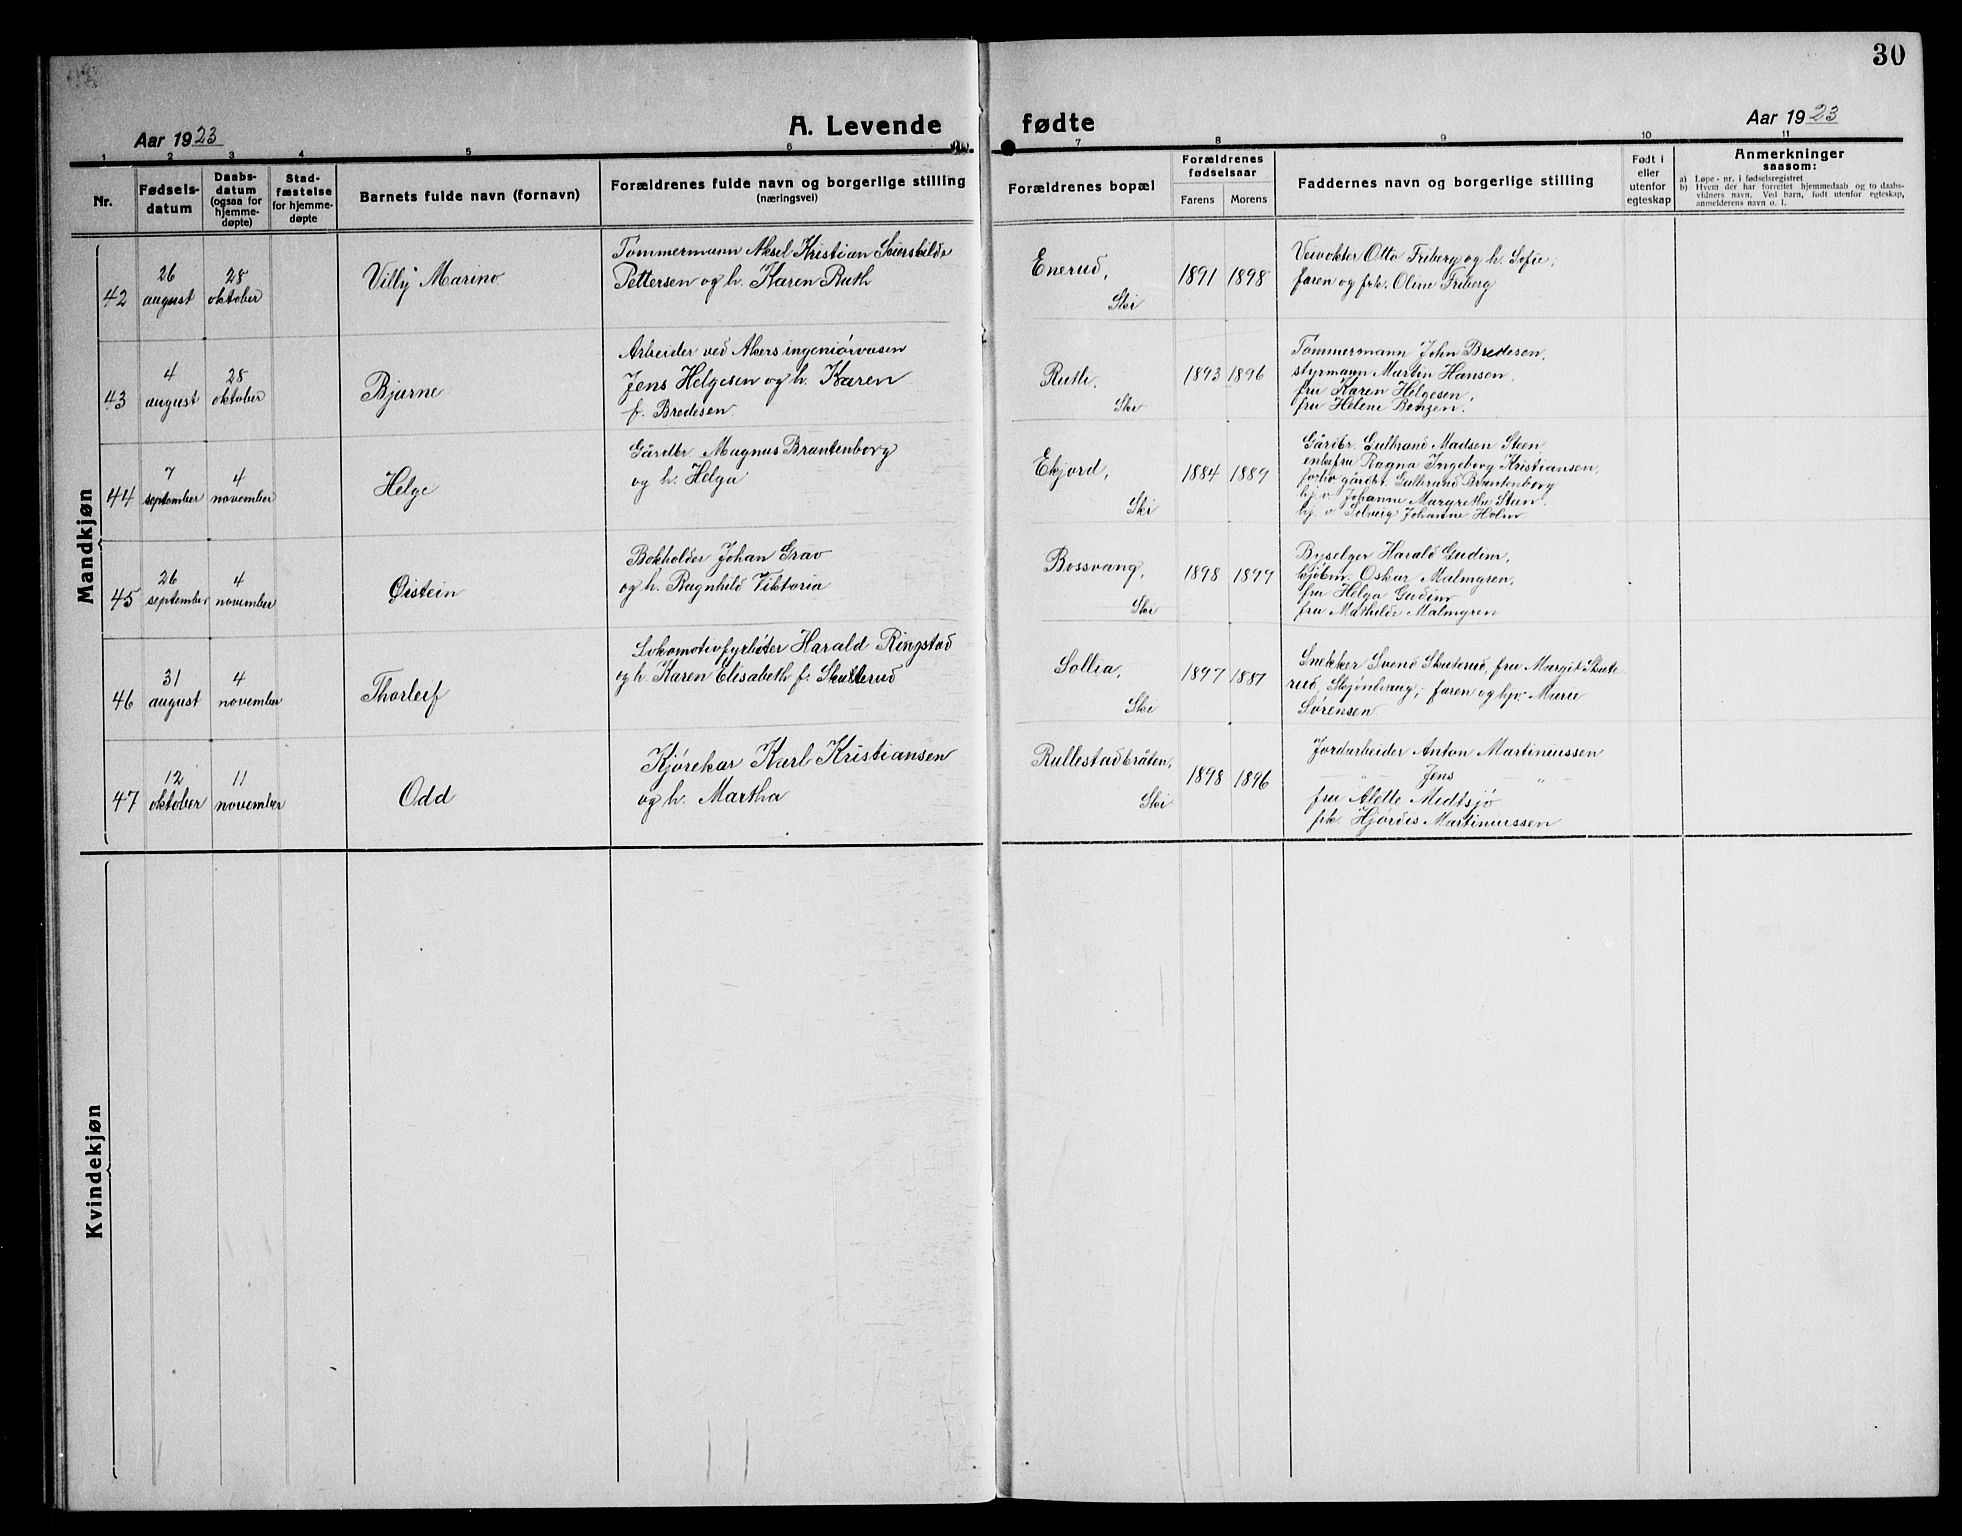 30
Aar 1923
A. Levende fødte
Aar 1923
1 2 3 4 5 6 7 8 9 10 11
Nr.
Fødsels-
datum
Daabs-
datum
(ogsaa for
hjemme-
døpte)
Stad-
fæstelse
for hjemme-
døpte
Barnets fulde navn (fornavn)
Forældrenes fulde navn og borgerlige stilling
(næringsvei)
Forældrenes bopæl
Forældrenes
fødselsaar
Farens Morens
Faddernes navn og borgerlige stilling
Født i
eller
utenfor
egteskap
Anmerkninger
saasom:
a) Løpe-nr. i fødselsregistret
b) Hvem der har forrettet hjemmedaab og to daabs-
vidners navn. Ved barn, født utenfor egteskap,
anmelderens navn o. l.
Mandkjøn
42
26
august
28
oktober
Villy Marino
Tømmermann Aksel Kristian
Pettersen og h. Karen Ruth
Enerud,
Ski
1891 1898
Veivokter Otto Friberg og h. Sofie,
faren og frk. Oline Friberg
43
4
august
28
oktober
Bjarne
Arbeider ved Akers ingeniørvæsen
Jens Helgesen og h. Karen
f. Bredesen
Ruth,
Ski
1893 1896
Tømmermann John Bredesen,
styrmann Martin Hansen,
fru Karen Helgesen,
fru Helene Benzen.
44
7
september
4
november
Helge
Gårdbr. Magnus Brantenborg
og h. Helga
Ekjord,
Ski
1884 1889
Gårdbr. Gulbrand Madsen Steen
enkefru Ragna Ingeborg Kristiansen,
forhv gårdbr. Gulbrand Brantenborg
hj. v. Johanne Margrethe Steen.
hj. v. Solveig Johanne Holm
45
26
september
4
november
Øistein
Bokholder Johan Grav
og h. Ragnhild Viktoria
Bossvang,
Ski
1898 1899
Byselger Harald Gudim,
kjøbm. Oskar Malmgren,
fru Helga Gudim
fru Mathilde Malmgren
46
31
august
4
november
Thorleif
Lokomotivfyrbøter Harald Ringstad
og h. Karen Elisabeth f. Skuterud
Sollia,
Ski
1897 1887
Snekker Svend Skuterud, fru Margit Skute
rud, Skjønhaug, faren og hv. Marie
Sørensen
47
12
oktober
11
november
Odd
Kjørekar Karl Kristiansen
og h. Martha
Rullestadbråten,
Ski
1898 1896
Jordarbeider Anton Martinussen
— " — Jens — " —
fru Alette Midtsjø
frk. Hjørdis Martinussen
Kvindekjøn